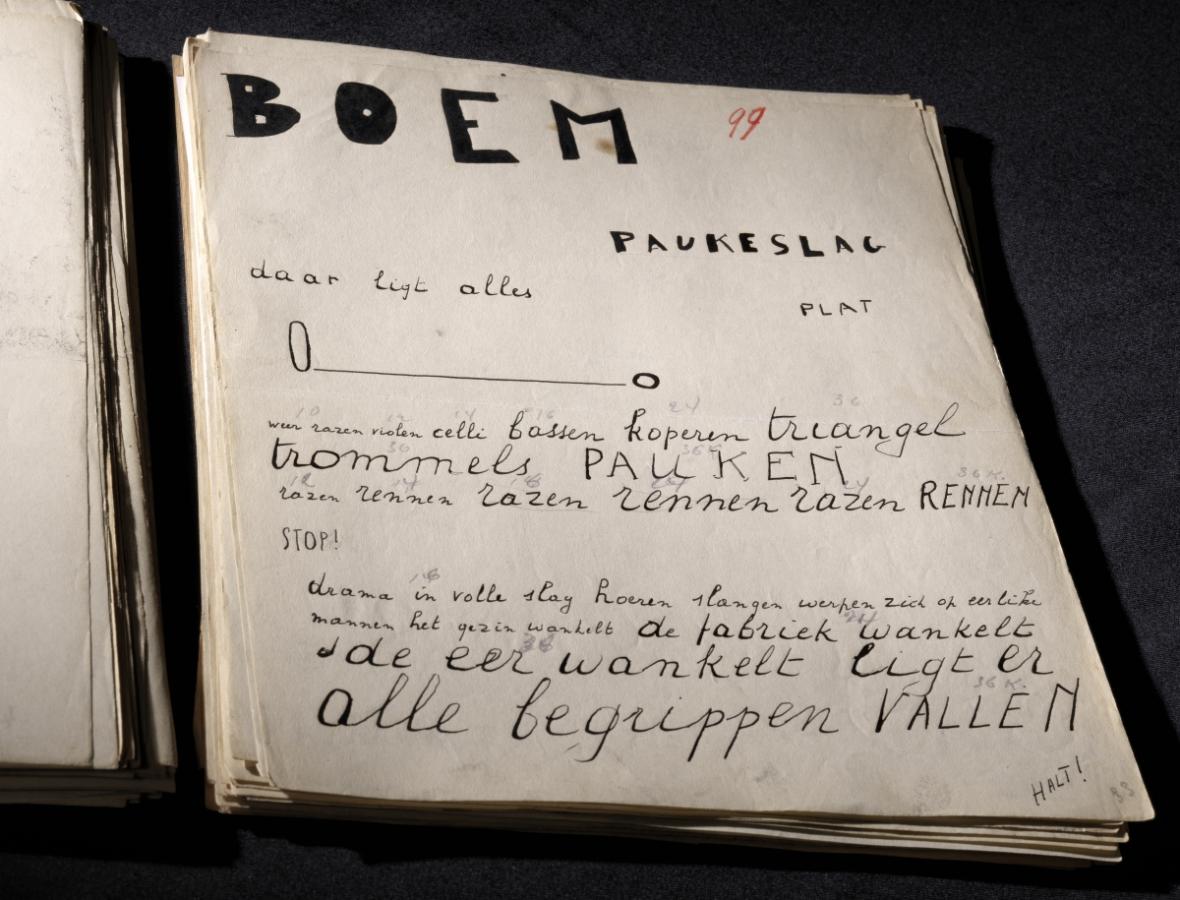 BOEM 99
PAUKESLAG
daar ligt alles
PLAT
O o
weer razen violen celli bassen koperen triangel
trommels PAUKEN
razen rennen razen rennen razen RENNEN
STOP!
drama in volle slag hoeren slangen werpen zich op eerlike
mannen het gezin wankelt de fabriek wankelt
de eer wankelt ligt er
alle begrippen VALLEN
HALT!